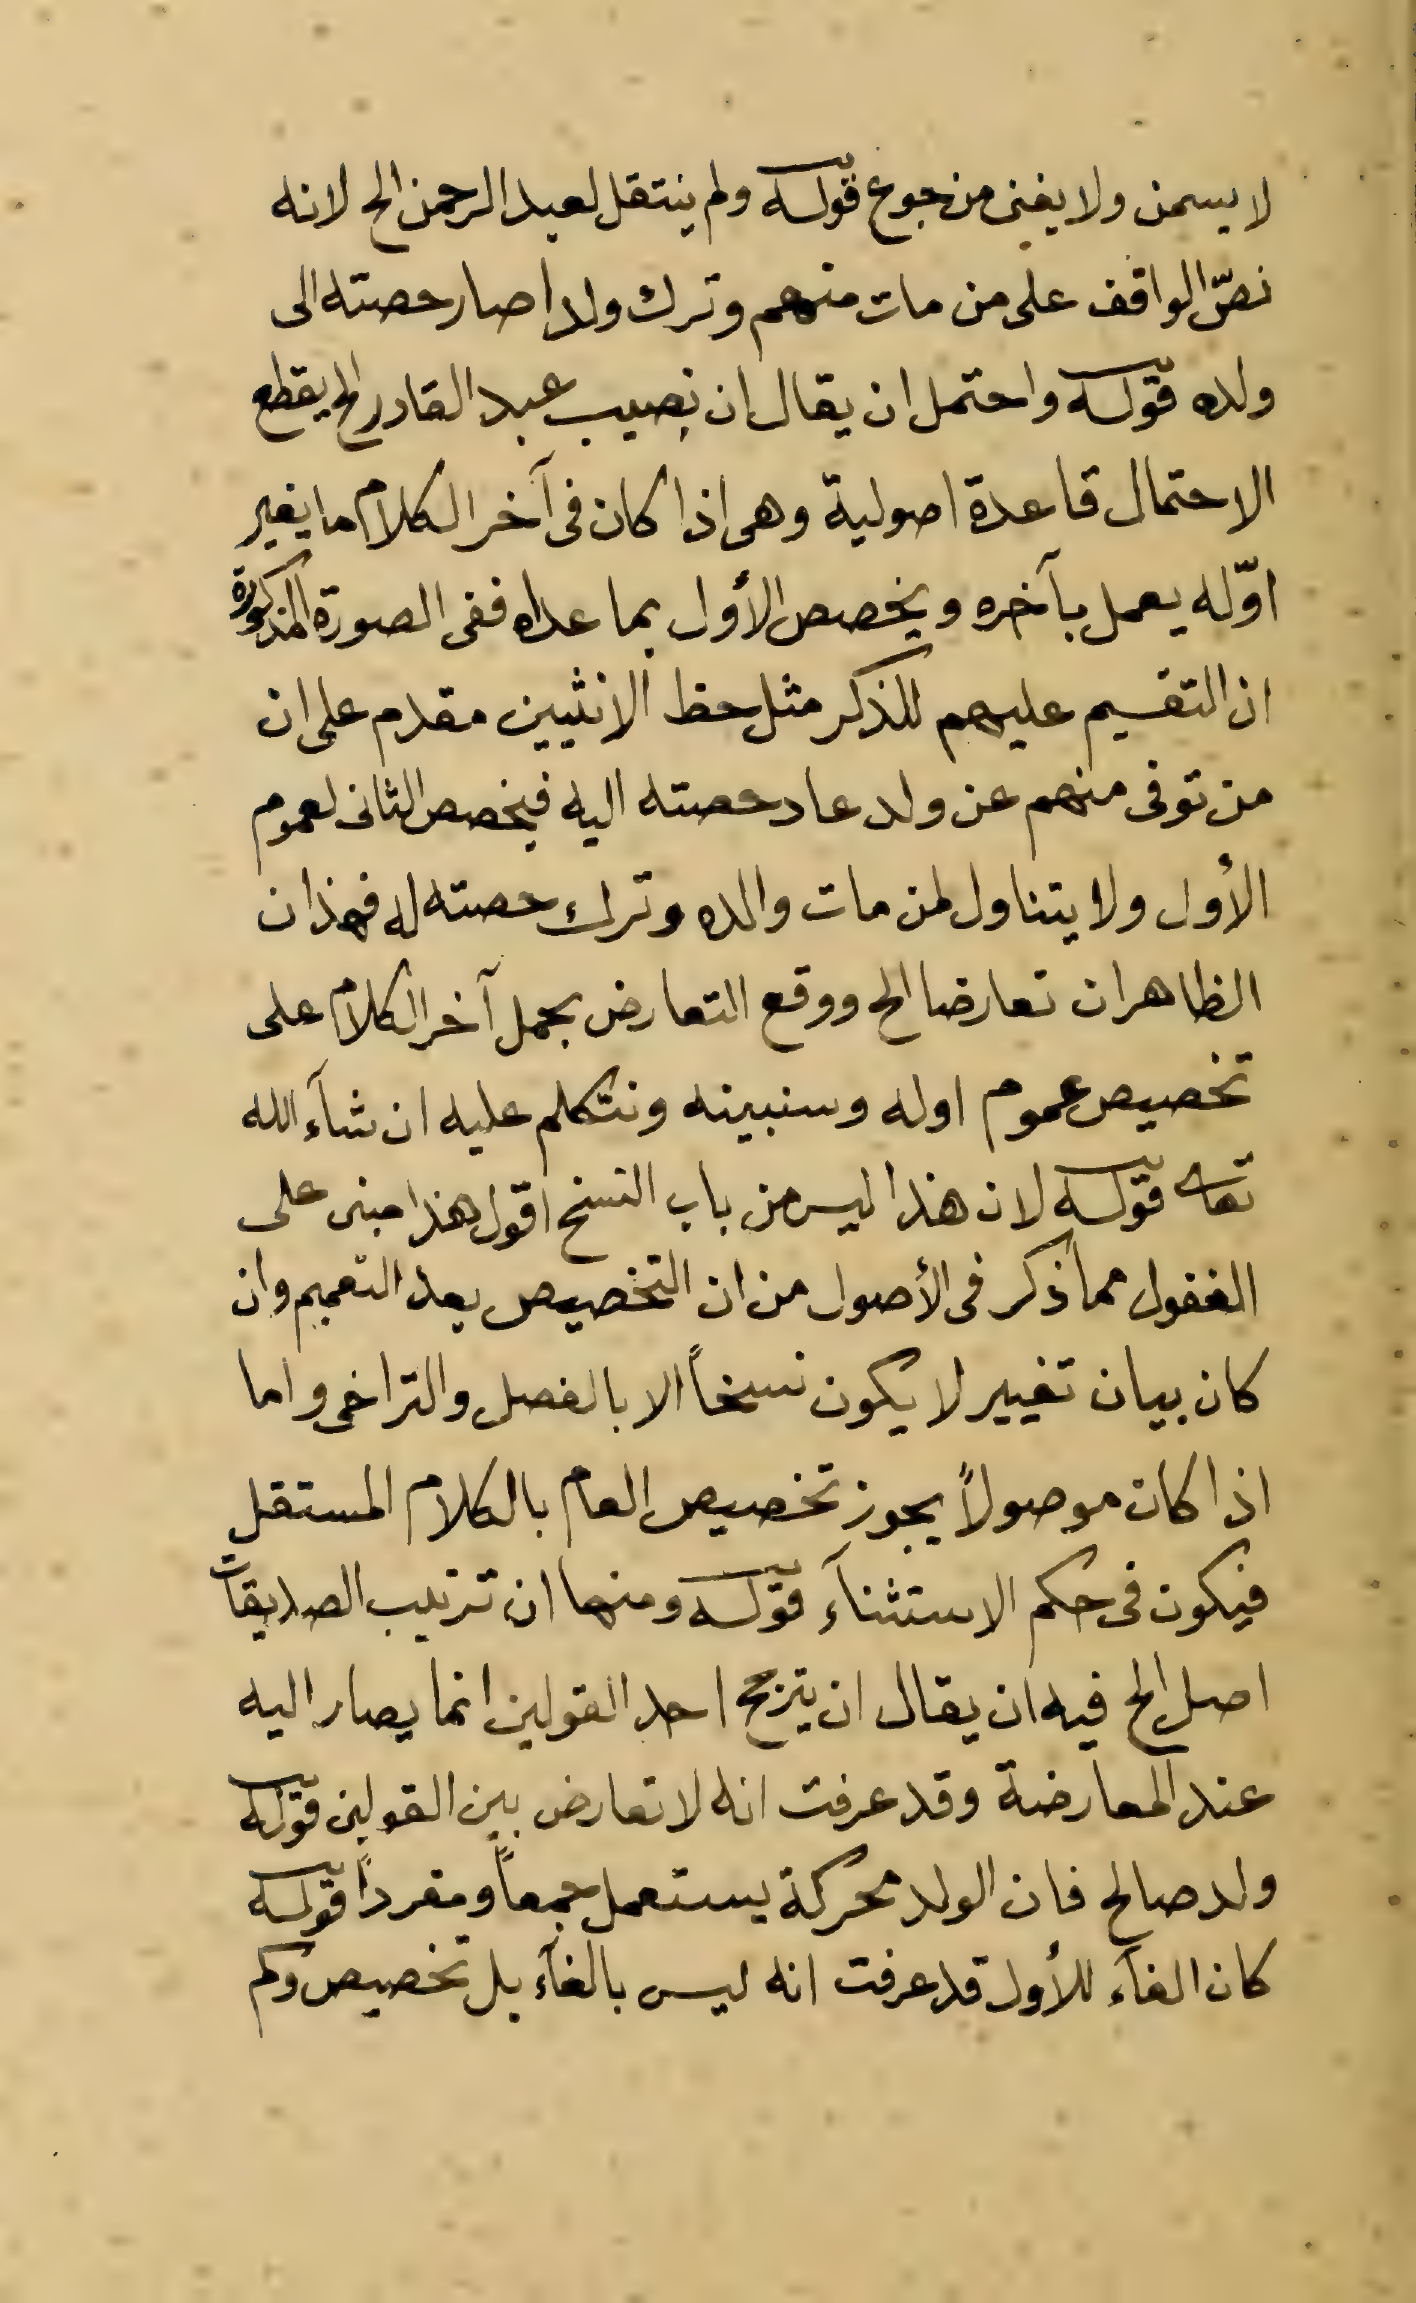 لا يسمن ولا يغنى من جوع قوله ولم ينتقل لعبد الرحمن الخ لانه
نصّ الواقف على من مات منهم وترك ولدا صار حصته الى
ولده قوله واحتمل ان يقال ان نصيب عبد القادر الخ يقطع
الاحتمال قاعدة اصولية وهى اذا كان فى آخر الكلام ما يغير
اوّله يعمل بآخره ويخصص الأول بما عداه ففى الصورة المذكورة
ان التقسيم عليهم للذكر مثل حظ الانثيين مقدم على ان
من توفى منهم عن ولد عاد حصته اليه فيخصص الثانى لعموم
الأول ولا يتناول لمن مات والده وترك حصته له فهذان
الظاهران تعارضا الخ ووقع التعارض بحمل آخر الكلام على
تخصيص عموم اوله وسنبينه ونتكلم عليه ان شآء الله
تعالى قوله لان هذا ليس من باب النسخ اقول هذا مبنى على
الغفول مما ذكر فى الأصول من ان التخصيص بعد التعميم وان
كان بيان تغيير لا يكون نسخاً الا بالفصل والتراخى واما
اذا كان موصولاً يجوز تخصيص العام بالكلام المستقل
فيكون فى حكم الاستثنآء قوله ومنها ان ترتيب
اصل الخ فيه ان يقال ان يترجح احد القولين انما يصار اليه
عند المعارضة وقد عرفت انه لا تعارض بين القولين قوله
ولد صالح فان الولد محركة يستعمل جمعاً ومفرداً قوله
كان الغآء للأول قد عرفت انه ليس بالغآء بل تخصيص وكم